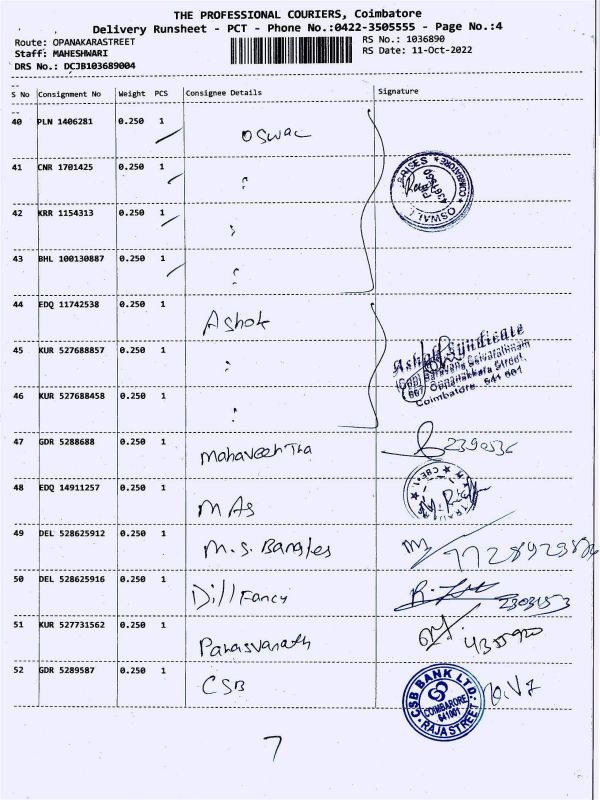 THE PROFESSIONAL COURIERS, Coimbatore
Delivery Runsheet - PCT - Phone No.:0422-3505555 - Page No.:4
Route: OPANAKARASTREET RS No.: 1036890
Staff: MAHESHWARI RS Date: 11-Oct-2022
DRS No.: DCJB103689004
S No Consignment No Weight PCS Consignee Details Signature
40 PLN 1406281 0.250 1 Oswal
41 CNR 1701425 0.250 1 "
42 KRR 1154313 0.250 1 "
43 BHL 100130887 0.250 1 "
COIMBATORE OSWAL
44 EDQ 11742538 0.250 1 Ashok
45 KUR 527688857 0.250 1 "
46 KUR 527688458 0.250 1 "
Ashok Syndicate
Street,
Coimbatore - 641 001
47 GDR 5288688 0.250 1 Mahaveeh 2390536
48 EDQ 14911257 0.250 1 MAS
CBE-1
49 DEL 528625912 0.250 1 M.S. Bangles
50 DEL 528625916 0.250 1 Dill Fancy 2303153
51 KUR 527731562 0.250 1 Parasvanath 4355920
52 GDR 5289587 0.250 1 CSB
CSB BANK LTD.
COIMBATORE
641001
RAJA STREET
7